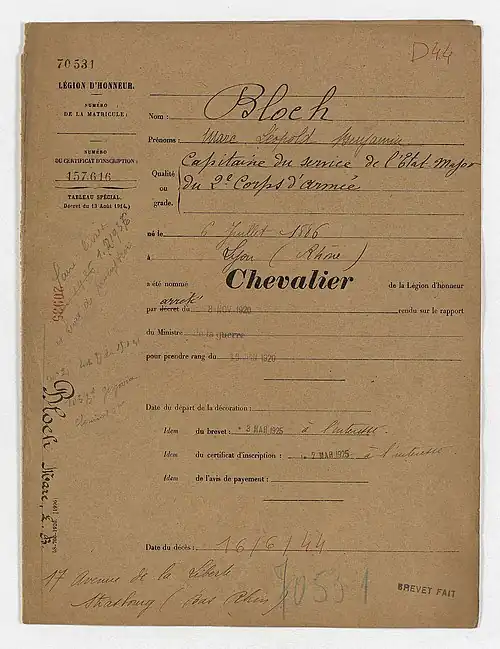 D44
70531
LÉGION D'HONNEUR.
NUMÉRO
DE LA MATRICULE:
NUMÉRO
DU CERTIFICAT D'INSCRIPTION:
157.616
TABLEAU SPÉCIAL.
Décret du 13 Août 1914.
Nom: Bloch
Prénoms: Marc Léopold Benjamin
Qualité ou grade. Capitaine du service de l'État-Major
du 2e Corps d'armée
né le 6 Juillet 1886
à Lyon (Rhône)
a été nommé Chevalier de la Légion d'honneur
arrêté
par décret du 8 NOV 1920 rendu sur le rapport
du Ministre de la guerre
pour prendre rang du 1920
Date du départ de la décoration:
Idem du brevet: 3 MAR 1925 à l'intéressé
Idem du certificat d'inscription: 7 MAR 1925 à l'intéressé
Idem de l'avis de payement:
Date du décès: 16/6/44
Bloch Marc, L. B.
17 Avenue de la Liberté
Strasbourg (Bas Rhin)
70531
BREVET FAIT